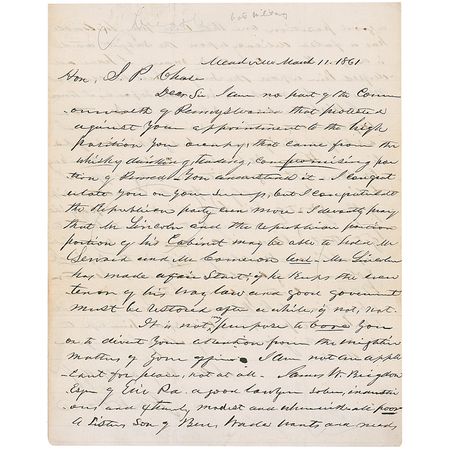 Meadville March 11. 1861
Hon. S. P. Chase
Dear Sir I am no part of the Com
onwealth of Pennsylvania that protested
against your appointment to the high
position you occupy; that came from the
whisky drinking trading, compromising por
tion of Penna. You understand it. I congrat
ulate you on your success, but I congratulate
the Republican party even more. I devoutly pray
that Mr Lincoln and the Republican
portion of his Cabinet may be able to hold Mr
Seward and Mr Cameron level. Mr Lincoln
has made a fair Start; if he keeps the even
tenor of his way law and good government
must be restored after a while, if not, not.
It is not my purpose to bore you
or to divert your attention from the weightier
matters of your office. I am not an appli
cant for place, not at all. James W. Brigden
Esqr of Erie Pa. a good lawyer sober, industri
ous and extremely modest and wherewithall poor
a Sisters Son of Ben. Wade wants and needs